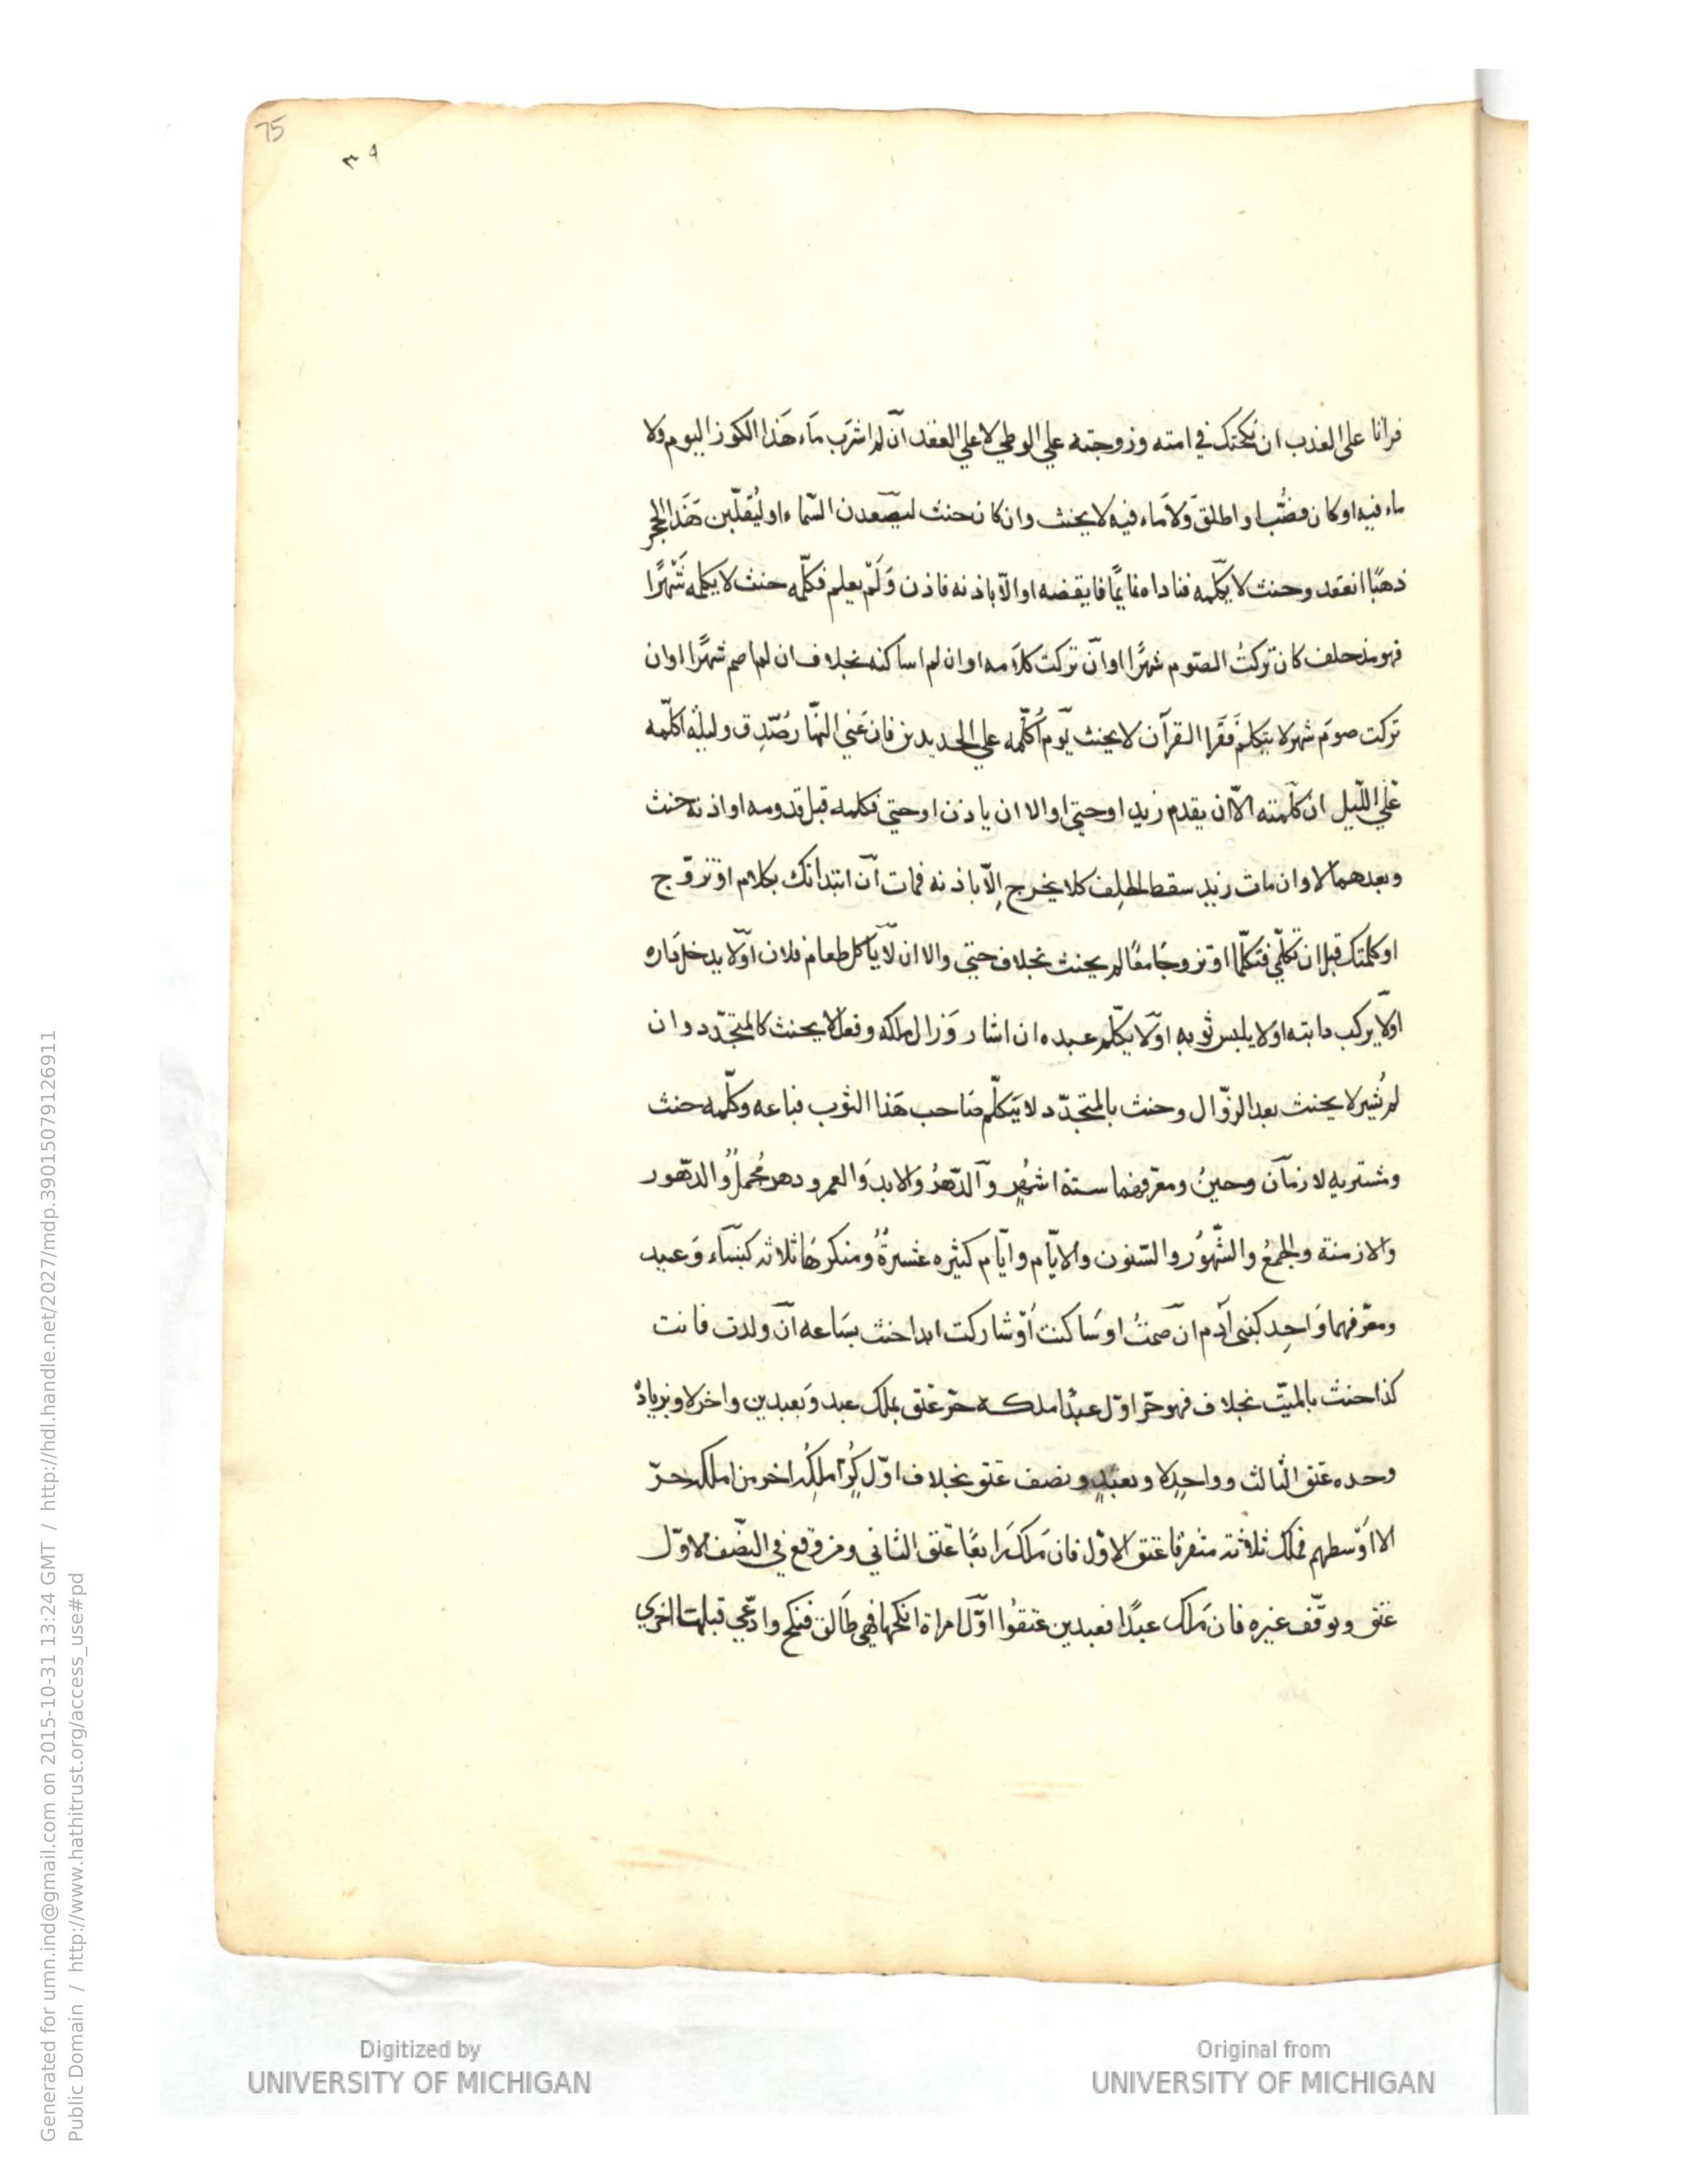 75
٣٩
فراتا على العذب ان نكحتك في امته وزوجته علي الوطي لا علي العقد ان لم اشرب ماء هذا الكوز اليوم ولا
ماء فيه او كان فصُبّ او اطلق ولا ماء فيه لا يحنث وان كان حنث ليصعدن السّماء او ليُقلّبن هَذا الحجر
ذهبًا انعقد وحنث لا يكلّمه فناداه نايمًا فايقضه او الّا باذنه فاذن وَلَمْ يعلم فكلّمه حنث لا يكلمه شَهْرًا
فهو مذ حلف كان تركتُ الصّوم شهرًا او ان تركت كلامه او ان لم اساكنه بخلاف ان لم اصم شهرًا او ان
تركت صوم شهر لا يتكلم فَقَرا القرآن لا يحنث يوم اُكلّمه علي الجديدين فان عَني النهّار صُدّق وليلة اكلّمه
عَلي اللّيل ان كلّمته الّا ان يقدم زيد او حتي او الا ان ياذن او حتي فكلمه قبل قدومه او اذنه حنث
وبعدهما لا وان مات زيد سقط الحلِف كلا يخرج اِلّا باذنه فمات ان ابتداتك بكلام او تزوّج
او كلمتك قبل ان تكلّمي فتكلّما او تزوجَا معًا لم يحنث بخلاف حتي والا ان لا ياكل طعام فلان او لا يدخل داره
او لا يركب دابته او لا يلبس ثوبه او لا يكلّم عبده ان اشار وَزال ملكه وفعل لا يحنث كالمتجدّد وان
لم يُشير لا يحنث بعد الزوّال وحنث بالمتجدّد لا يَتكلّم صَاحب هَذا الثوب فباعه وكلّمه حنث
ومشتريه لا زمان وحينُ ومعرّفهما ستة اشهُرٍ والدّهرُ وَالابد وَالعمر ودهر مُجملٌ والدّهور
والازمنة والجمعُ والشّهوُر والسّنون والايّام وايّام كثيره عشرةُ ومنكرهَا ثلاثه كنسَاء وَعبيد
ومعرّفهما وَاحِد كبنى آدم ان صمتُ او سَاكنت اوْ شاركت ابدا حنث بسَاعه ان ولدت فانت
كذا حنث بالميّت بخلاف فهو حرّ اوّل عبدًا ملكه حرّ عَتق بملك عبد وَبعبدين واخر لا وبزيادة
وحده عَتق الثالث وواحِد لا وبعَبْدٍ ونصف عتق بخلاف اوّل كُرّ املكُه اخر من املكه حرّ
الا اوْسطهم فملك ثلاثه متفرقا عتق الاوّل فان مَلك رَابعًا عتق الثاني ومن وقع في النصّف الاوّل
عتق وتوقّف غيره فان مَلك عبدًا فعبدين عتقوُا اوّل امراة انكحها فهي طَالق فنكح وادّعي قبلها اخري
Digitized by
UNIVERSITY OF MICHIGAN
Original from
UNIVERSITY OF MICHIGAN
Generated for umn.ind@gmail.com on 2015-10-31 13:24 GMT / http://hdl.handle.net/2027/mdp.39015079126911
Public Domain / http://www.hathitrust.org/access_use#pd